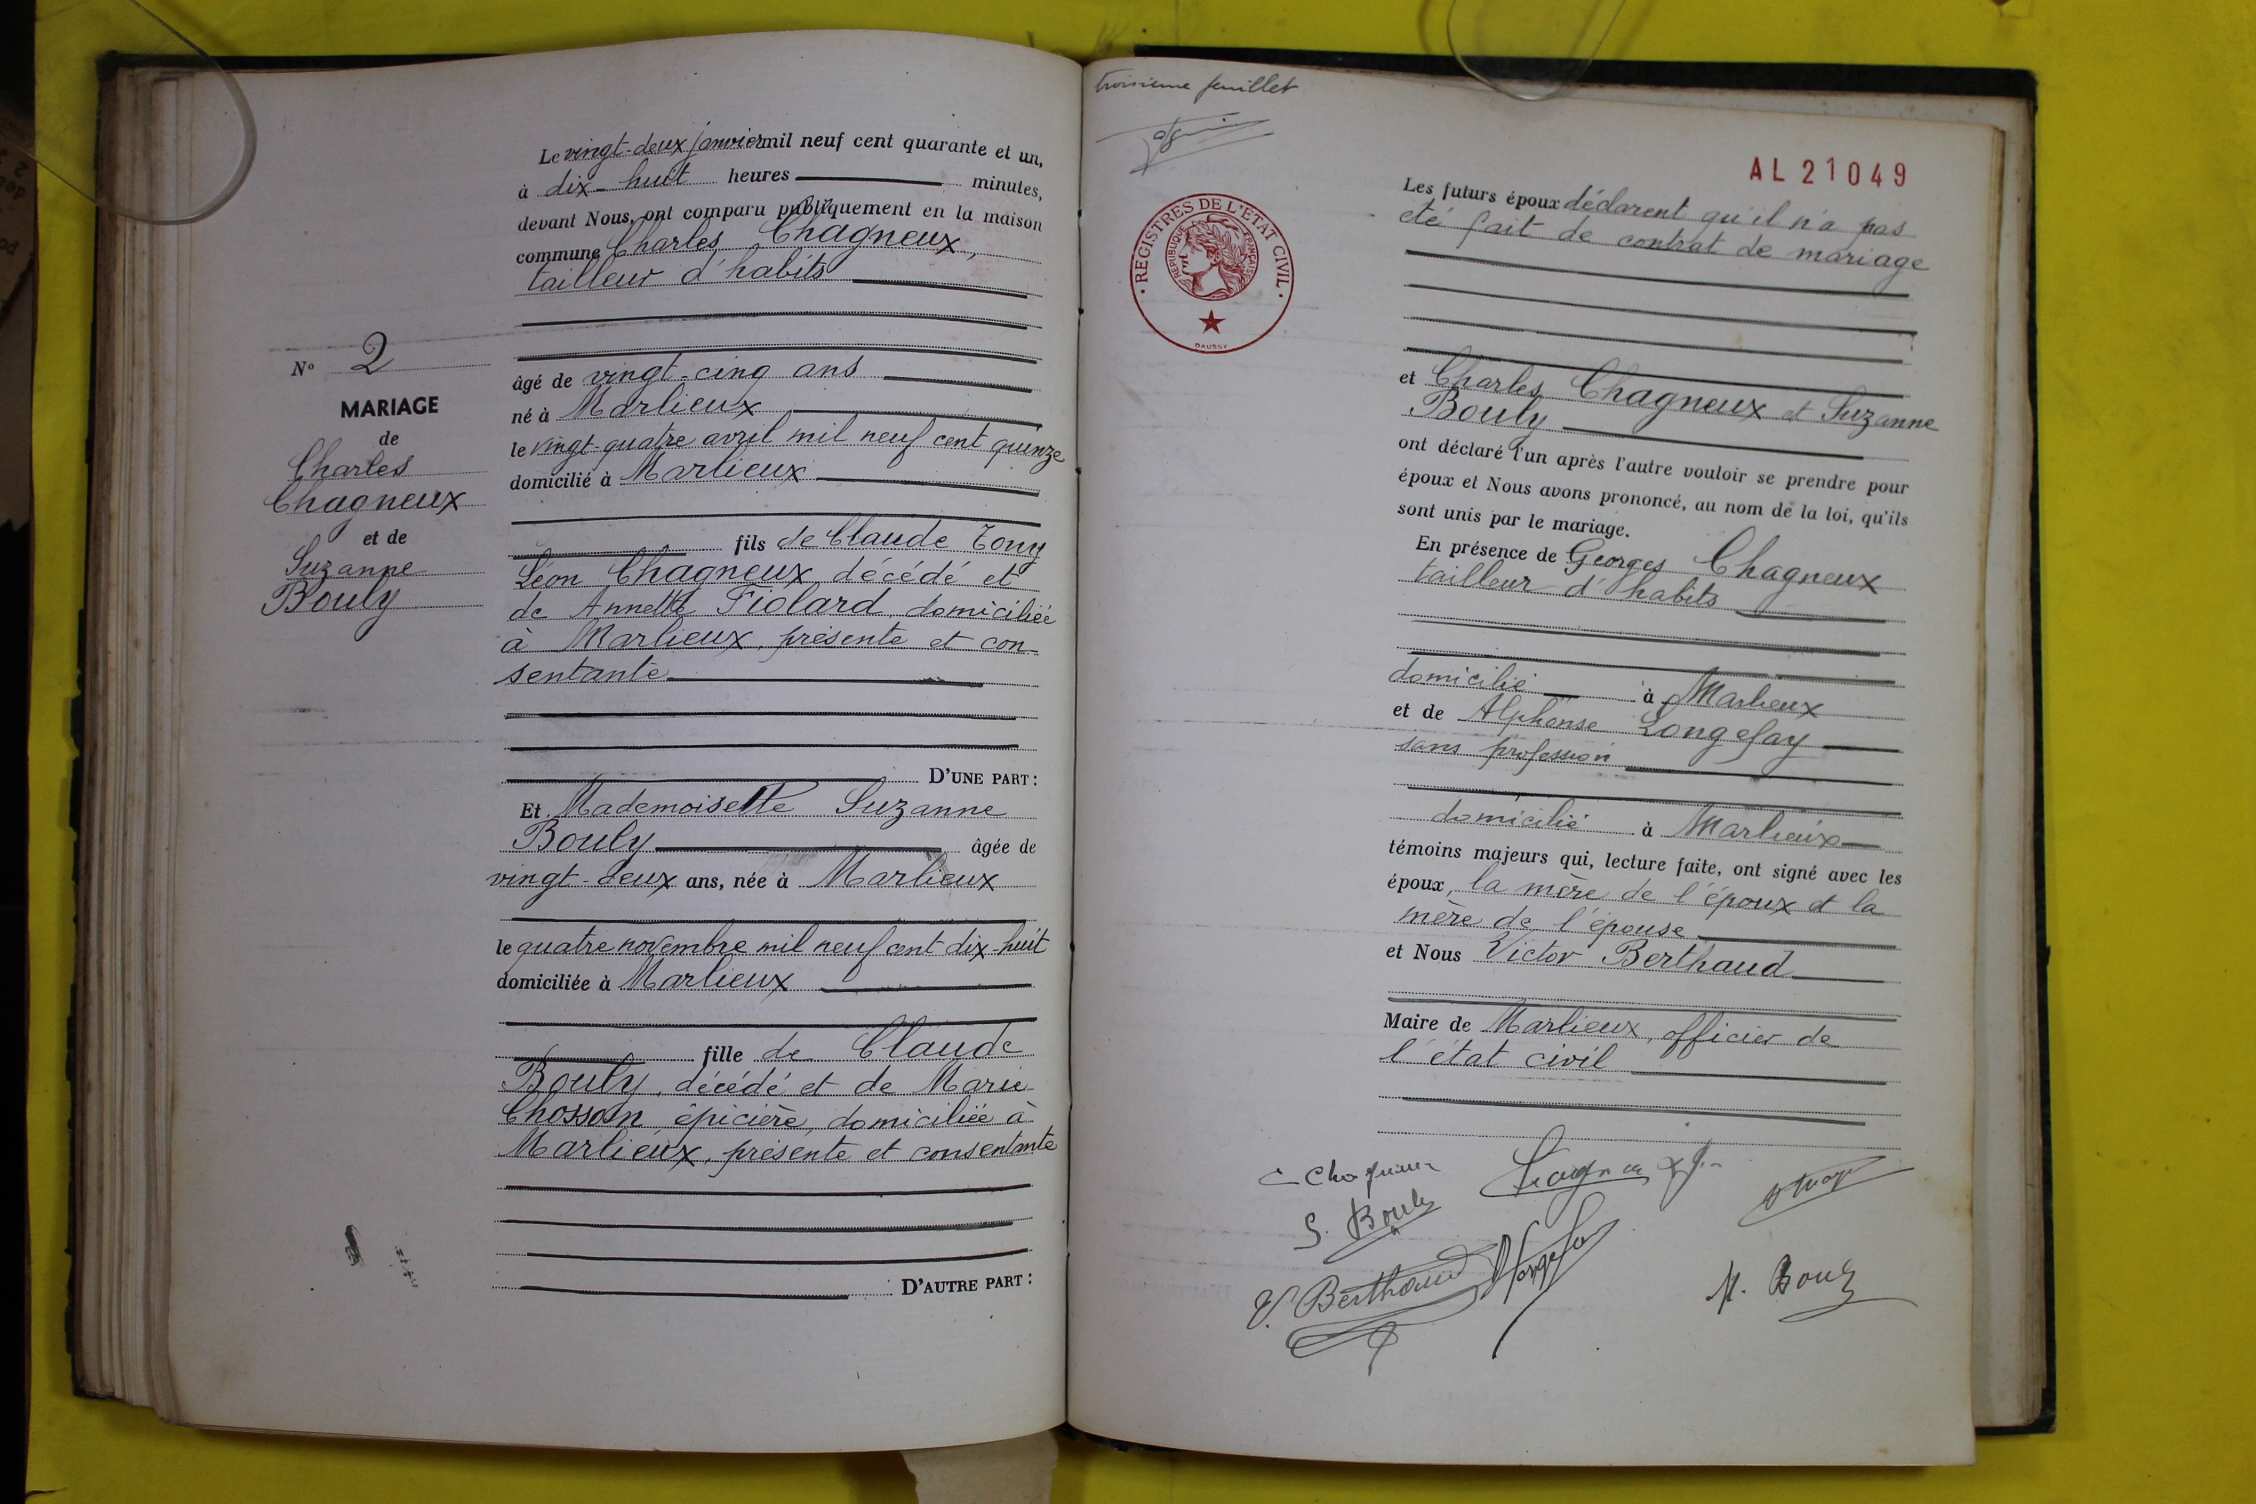 Le vingt-deux janvier mil neuf cent quarante et un,
à dix-huit heures minutes,
devant Nous, ont comparu publiquement en la maison
commune Charles Chagneux,
tailleur d'habits
N° 2
MARIAGE
de
Charles
Chagneux
et de
Suzanne
Bouly
âgé de vingt-cinq ans
né à Marlieux
le vingt-quatre avril mil neuf cent quinze
domicilié à Marlieux
fils de Claude Tony
Léon Chagneux, décédé et
de Annette Fiolard, domiciliée
à Marlieux, présente et con
sentante
D'UNE PART :
Et Mademoiselle Suzanne
Bouly âgée de
vingt-deux ans, née à Marlieux
le quatre novembre mil neuf cent dix-huit
domiciliée à Marlieux
fille de Claude
Bouly, décédé et de Marie
Chosson épicière, domiciliée à
Marlieux, présente et consentante
D'AUTRE PART :
troisième feuillet
AL 21049
REGISTRES DE L'ÉTAT CIVIL
RÉPUBLIQUE FRANÇAISE
DAUSSY
Les futurs époux déclarent qu'il n'a pas
été fait de contrat de mariage
et Charles Chagneux et Suzanne
Bouly
ont déclaré l'un après l'autre vouloir se prendre pour
époux et Nous avons prononcé, au nom de la loi, qu'ils
sont unis par le mariage.
En présence de Georges Chagneux
tailleur d'habits
domicilié à Marlieux
et de Alphonse Longefay
sans profession
domicilié à Marlieux
témoins majeurs qui, lecture faite, ont signé avec les
époux, la mère de l'époux et la
mère de l'épouse
et Nous Victor Berthaud
Maire de Marlieux, officier de
l'état civil
C Chagneux
S. Bouly
V. Berthaud
M. Bouly